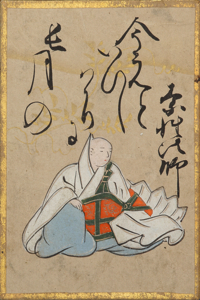 素性法師
今こんと
いひし
はかりに
長月の